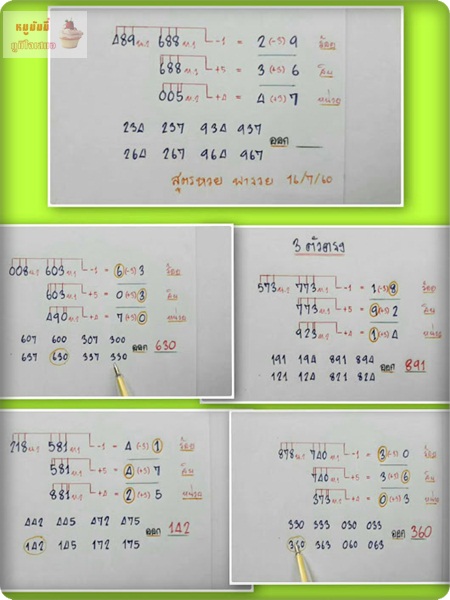 หมูอันยี่
ภูมิใจเสนอ
489 น.1 688 น.1 -1 = 2 (-3) 9 ร้อย
688 น.1 +5 = 3 (+3) 6 สิบ
005 น.1 +4 = 4 (+3) 7 หน่วย
234 237 934 937
264 267 964 967 ออก ___
สูตรหวย พารวย 16/7/60
008 น.1 603 น.1 -1 = 6 (-3) 3 ร้อย
603 น.1 +5 = 0 (+3) 3 สิบ
490 น.1 +4 = 7 (+3) 0 หน่วย
607 600 307 300
637 630 337 330 ออก 630
3 ตัวตรง
573 น.1 773 น.1 -1 = 1 (-3) 8 ร้อย
773 น.1 +5 = 9 (+3) 2 สิบ
923 น.1 +4 = 1 (+3) 4 หน่วย
191 194 891 894
121 124 821 824 ออก 891
218 น.1 581 น.1 -1 = 4 (-3) 1 ร้อย
581 น.1 +5 = 4 (+3) 7 สิบ
881 น.1 +4 = 2 (+3) 5 หน่วย
442 445 472 475
142 145 172 175 ออก 142
878 น.1 740 น.1 -1 = 3 (-3) 0 ร้อย
740 น.1 +5 = 3 (+3) 6 สิบ
373 น.1 +4 = 0 (+3) 3 หน่วย
330 333 030 033
360 363 060 063 ออก 360